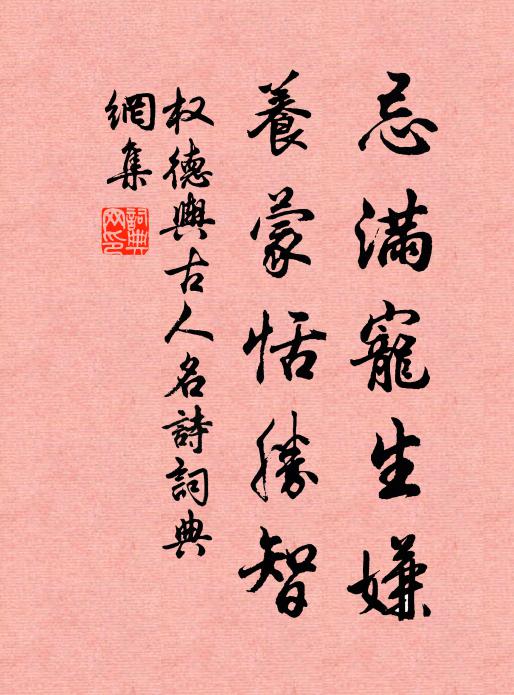 忌滿寵生嫌
養蒙恬勝智
权德輿古人名詩詞典
網集
詞典网印